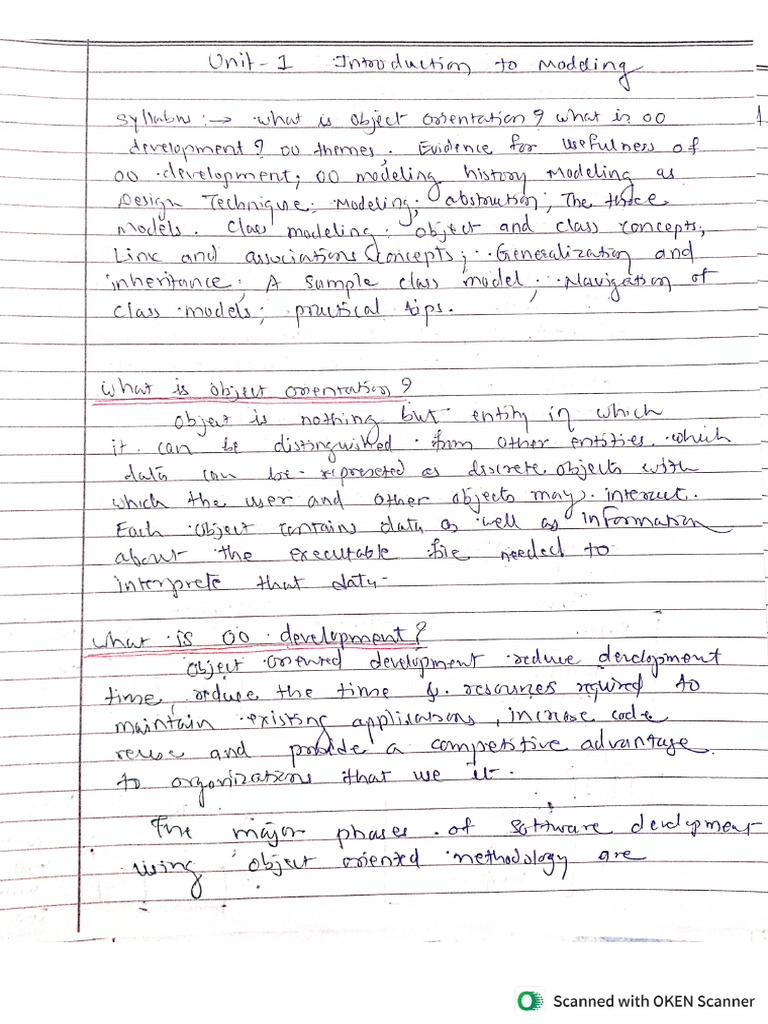 Unit-1 Introduction to Modeling
Syllabus :→ what is object orientation? what is OO
development? OO themes; Evidence for usefulness of
OO development; OO modeling history Modeling as
Design Technique; Modeling; abstraction; The three
models. Class modeling; object and class concepts;
Link and associations concepts; Generalization and
inheritance; A sample class model; Navigation of
class models; practical tips.
What is object orientation?
Object is nothing but entity in which
it can be distinguished from other entities which
data can be represeted as discrete objects with
which the user and other objects may interact.
Each object contains data as well as information
about the executable file needed to
interprete that data
What is OO development?
Object oriented development reduce development
time, reduce the time & resources required to
maintain existing applications, increase code
reuse and provide a competitive advantage
to organizations that we it.
The major phases of software development
using object oriented methodology are
1
Scanned with OKEN Scanner